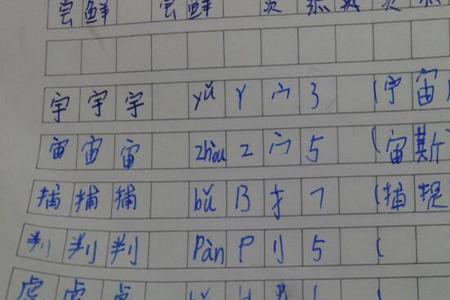 尝鲜 尝鲜
宇 宇 宇 yǔ Y 宀 3 (宇宙
宙 宙 宙 zhòu Z 宀 5 (宙斯
捕 捕 捕 bǔ B 扌 7 (捕捉
判 判 判 Pàn P 刂 5 (
虎 虎